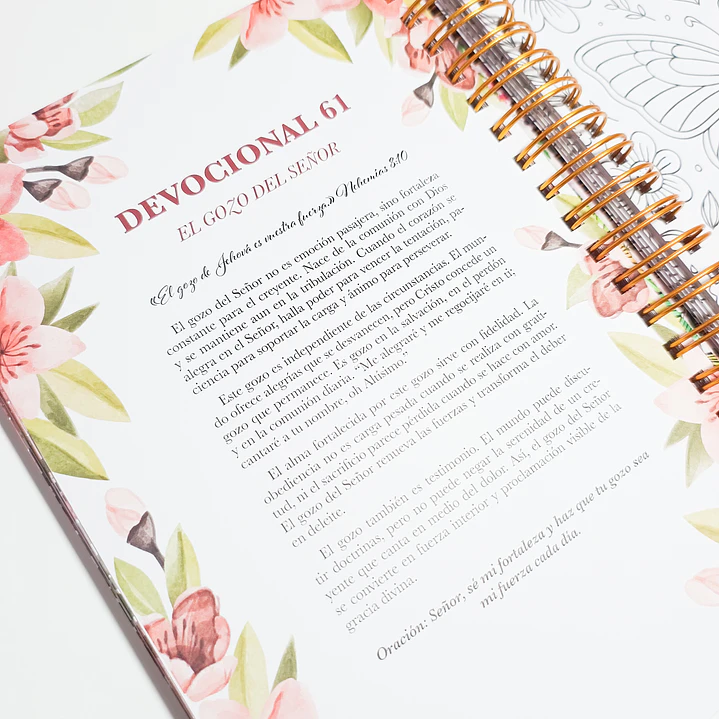 DEVOCIONAL 61
EL GOZO DEL SEÑOR
«El gozo de Jehová es nuestra fuerza» Nehemías 8:10
El gozo del Señor no es emoción pasajera, sino fortaleza
constante para el creyente. Nace de la comunión con Dios
y se mantiene aun en la tribulación. Cuando el corazón se
alegra en el Señor, halla poder para vencer la tentación, pa-
ciencia para soportar la carga y ánimo para perseverar.
Este gozo es independiente de las circunstancias. El mun-
do ofrece alegrías que se desvanecen, pero Cristo concede un
gozo que permanece. Es gozo en la salvación, en el perdón
y en la comunión diaria. "Me alegraré y me regocijaré en ti:
cantaré a tu nombre, oh Altísimo."
El alma fortalecida por este gozo sirve con fidelidad. La
obediencia no es carga pesada cuando se realiza con grati-
tud, ni el sacrificio parece pérdida cuando se hace con amor.
El gozo del Señor renueva las fuerzas y transforma el deber
en deleite.
El gozo también es testimonio. El mundo puede discu-
tir doctrinas, pero no puede negar la serenidad de un cre-
yente que canta en medio del dolor. Así, el gozo del Señor
se convierte en fuerza interior y proclamación visible de la
gracia divina.
Oración: Señor, sé mi fortaleza y haz que tu gozo sea
mi fuerza cada día.